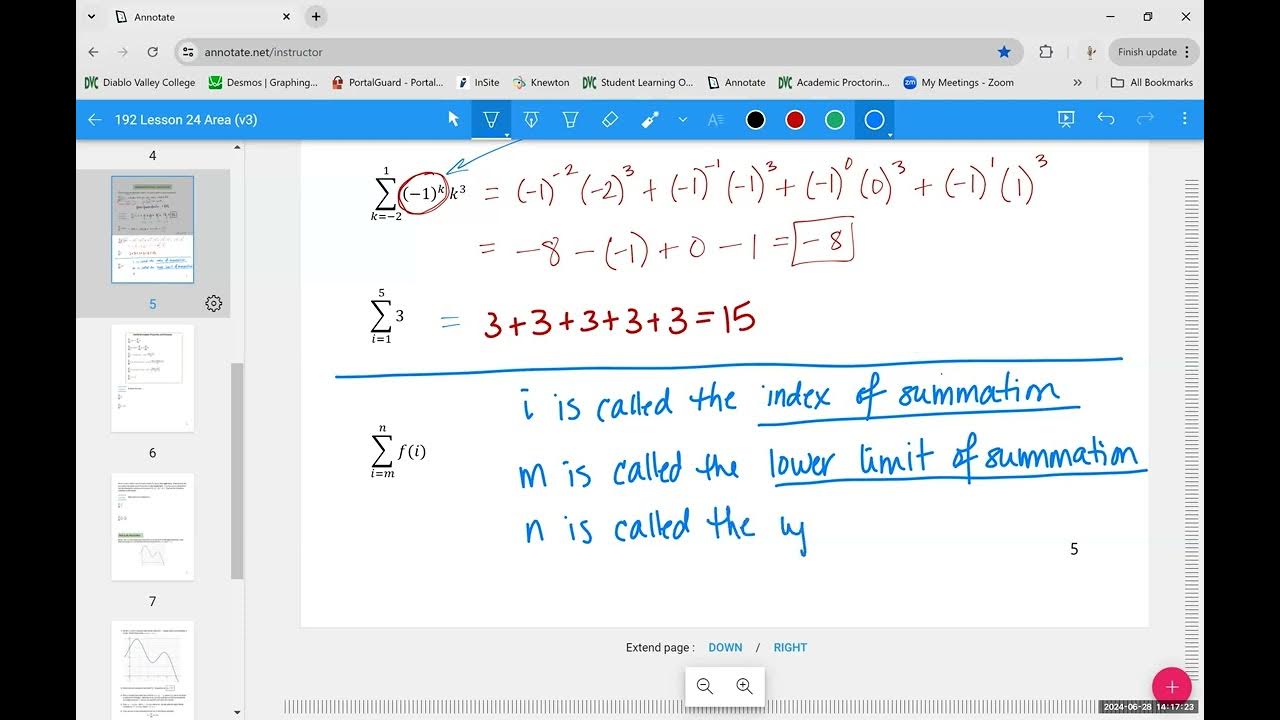 Annotate
annotate.net/instructor
Finish update
Diablo Valley College
Desmos | Graphing...
PortalGuard - Portal...
InSite
Knewton
Student Learning O...
Annotate
Academic Proctorin...
My Meetings - Zoom
»
All Bookmarks
192 Lesson 24 Area (v3)
4
5
6
7
1
∑ (-1)^k k³ = (-1)^-2 (-2)^3 + (-1)^-1 (-1)^3 + (-1)^0 (0)^3 + (-1)^1 (1)^3
k=-2
= -8 - (-1) + 0 - 1 = -8
5
∑ 3 = 3+3+3+3+3=15
i=1
i is called the index of summation
n
∑ f(i)
i=m
m is called the lower limit of summation
n is called the
5
Extend page : DOWN RIGHT
2024-06-28 14:17:23